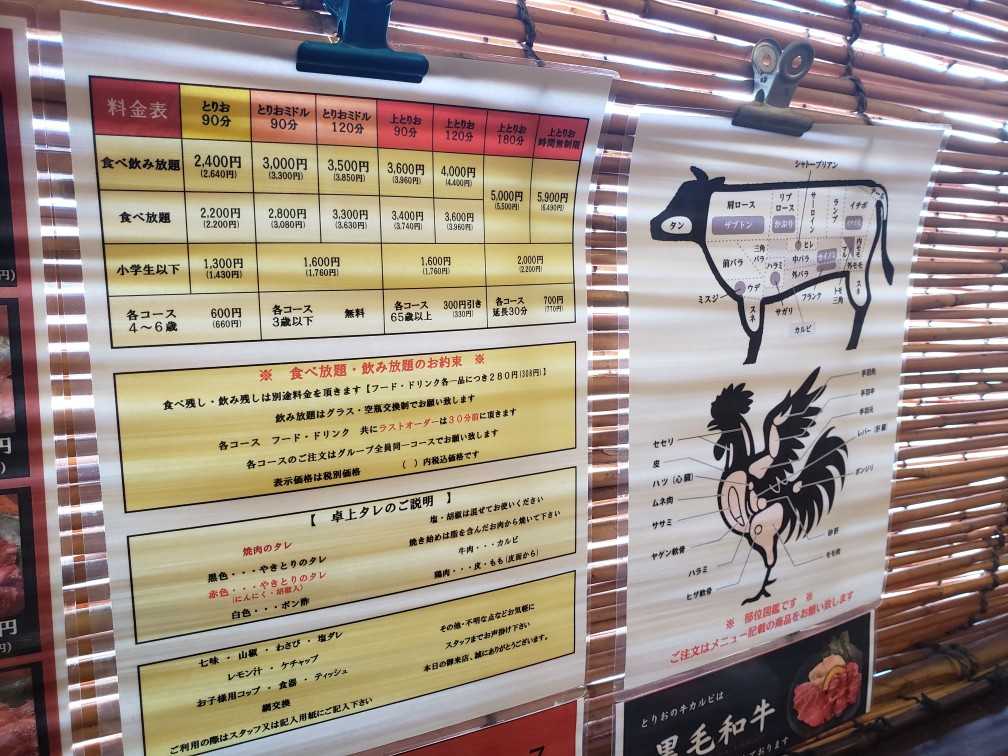 料金表
とりお 90分
とりおミドル 90分
とりおミドル 120分
上とりお 90分
上とりお 120分
上とりお 180分
上とりお 時間無制限
食べ飲み放題
2,400円 (2.640円)
3,000円 (3,300円)
3,500円 (3,850円)
3,600円 (3,960円)
4,000円 (4,400円)
5,000円 (5,500円)
5,900円 (6,490円)
食べ放題
2,200円 (2.200円)
2,800円 (3,080円)
3,300円 (3,630円)
3,400円 (3,740円)
3,600円 (3,960円)
小学生以下
1,300円 (1,430円)
1,600円 (1,760円)
1,600円 (1,760円)
2,000円 (2,200円)
各コース 4〜6歳
600円 (660円)
各コース 3歳以下
無料
各コース 65歳以上
300円引き (330円)
各コース 延長30分
700円 (770円)
※ 食べ放題・飲み放題のお約束 ※
食べ残し・飲み残しは別途料金を頂きます【フード・ドリンク各一品につき280円(308円)】
飲み放題はグラス・空瓶交換制でお願い致します
各コース フード・ドリンク 共にラストオーダーは30分前に頂きます
各コースのご注文はグループ全員同一コースでお願い致します
表示価格は税別価格 ( )内税込価格です
【 卓上タレのご説明 】
焼肉のタレ
黒色・・・やきとりのタレ
赤色・・・やきとりのタレ
(にんにく・胡椒入)
白色・・・ポン酢
塩・胡椒は混ぜてお使いください
焼き始めは脂を含んだお肉から焼いて下さい
牛肉・・・カルビ
鶏肉・・・皮・もも(皮面から)
七味・山椒・わさび・塩ダレ
レモン汁・ケチャップ
お子様用コップ・食器・ティッシュ
網交換
ご利用の際はスタッフ又は記入用紙にご記入下さい
その他・不明な点などお気軽に
スタッフまでお声掛け下さい
本日の御来店、誠にありがとうございます。
シャトーブリアン
タン
肩ロース
リブロース
サーロイン
ランプ
イチボ
ザブトン
かぶり
ヒレ
三角バラ
前バラ
ハラミ
中バラ
外バラ
内モモ
外モモ
ミスジ
ウデ
スネ
サガリ
フランク
カルビ
トモ三角
スネ
セセリ
皮
ハツ(心臓)
ムネ肉
ササミ
ヤゲン軟骨
ハラミ
ヒザ軟骨
手羽先
手羽中
手羽元
レバー(肝臓)
ボンジリ
砂肝
モモ肉
※ 部位図鑑です ※
ご注文はメニュー記載の商品をお願い致します
とりおの牛カルビは
黒毛和牛